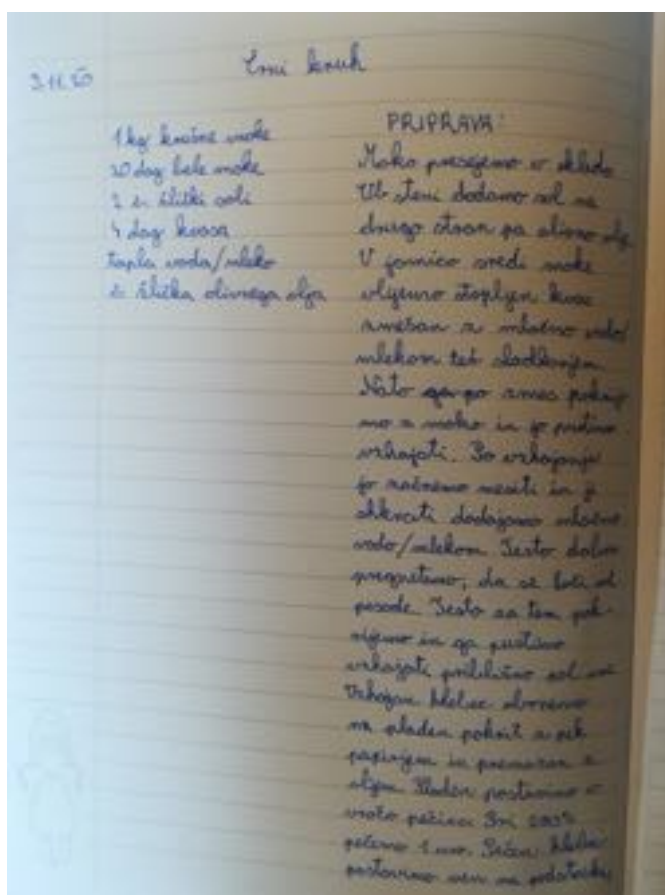 Črni kruh
3.11.20
1 kg krušne moke
20 dag bele moke
2 č. žlički soli
4 dag kvasa
topla voda/mleko
č. žlička olivnega olja
PRIPRAVA:
Moko presejemo v skledo
Ob steni dodamo sol na
drugo stran pa olivno olje
V jamico sredi moke
vlijemo stopljen kvas
zmešan z mlačno vodo/
mlekom ter sladkorjem.
Nato ga po zmes pokrij
mo z moko in jo pustimo
vzhajati. Po vzhajanju
jo začnemo mesiti in ji
dodajamo mlačno
vodo/mlekom Testo dobro
pregnetemo, da se loči od
posode. Testo za tem pok-
rijemo in ga pustimo
vzhajati približno pol ure
Vzhajan hlebec
na pladen pokrit s pek
papirjem in premazan z
oljem. Pladen postavimo v
vročo pečico. Pri 200°
pečemo 1 uro. Pečen hlebec
postavimo ven na